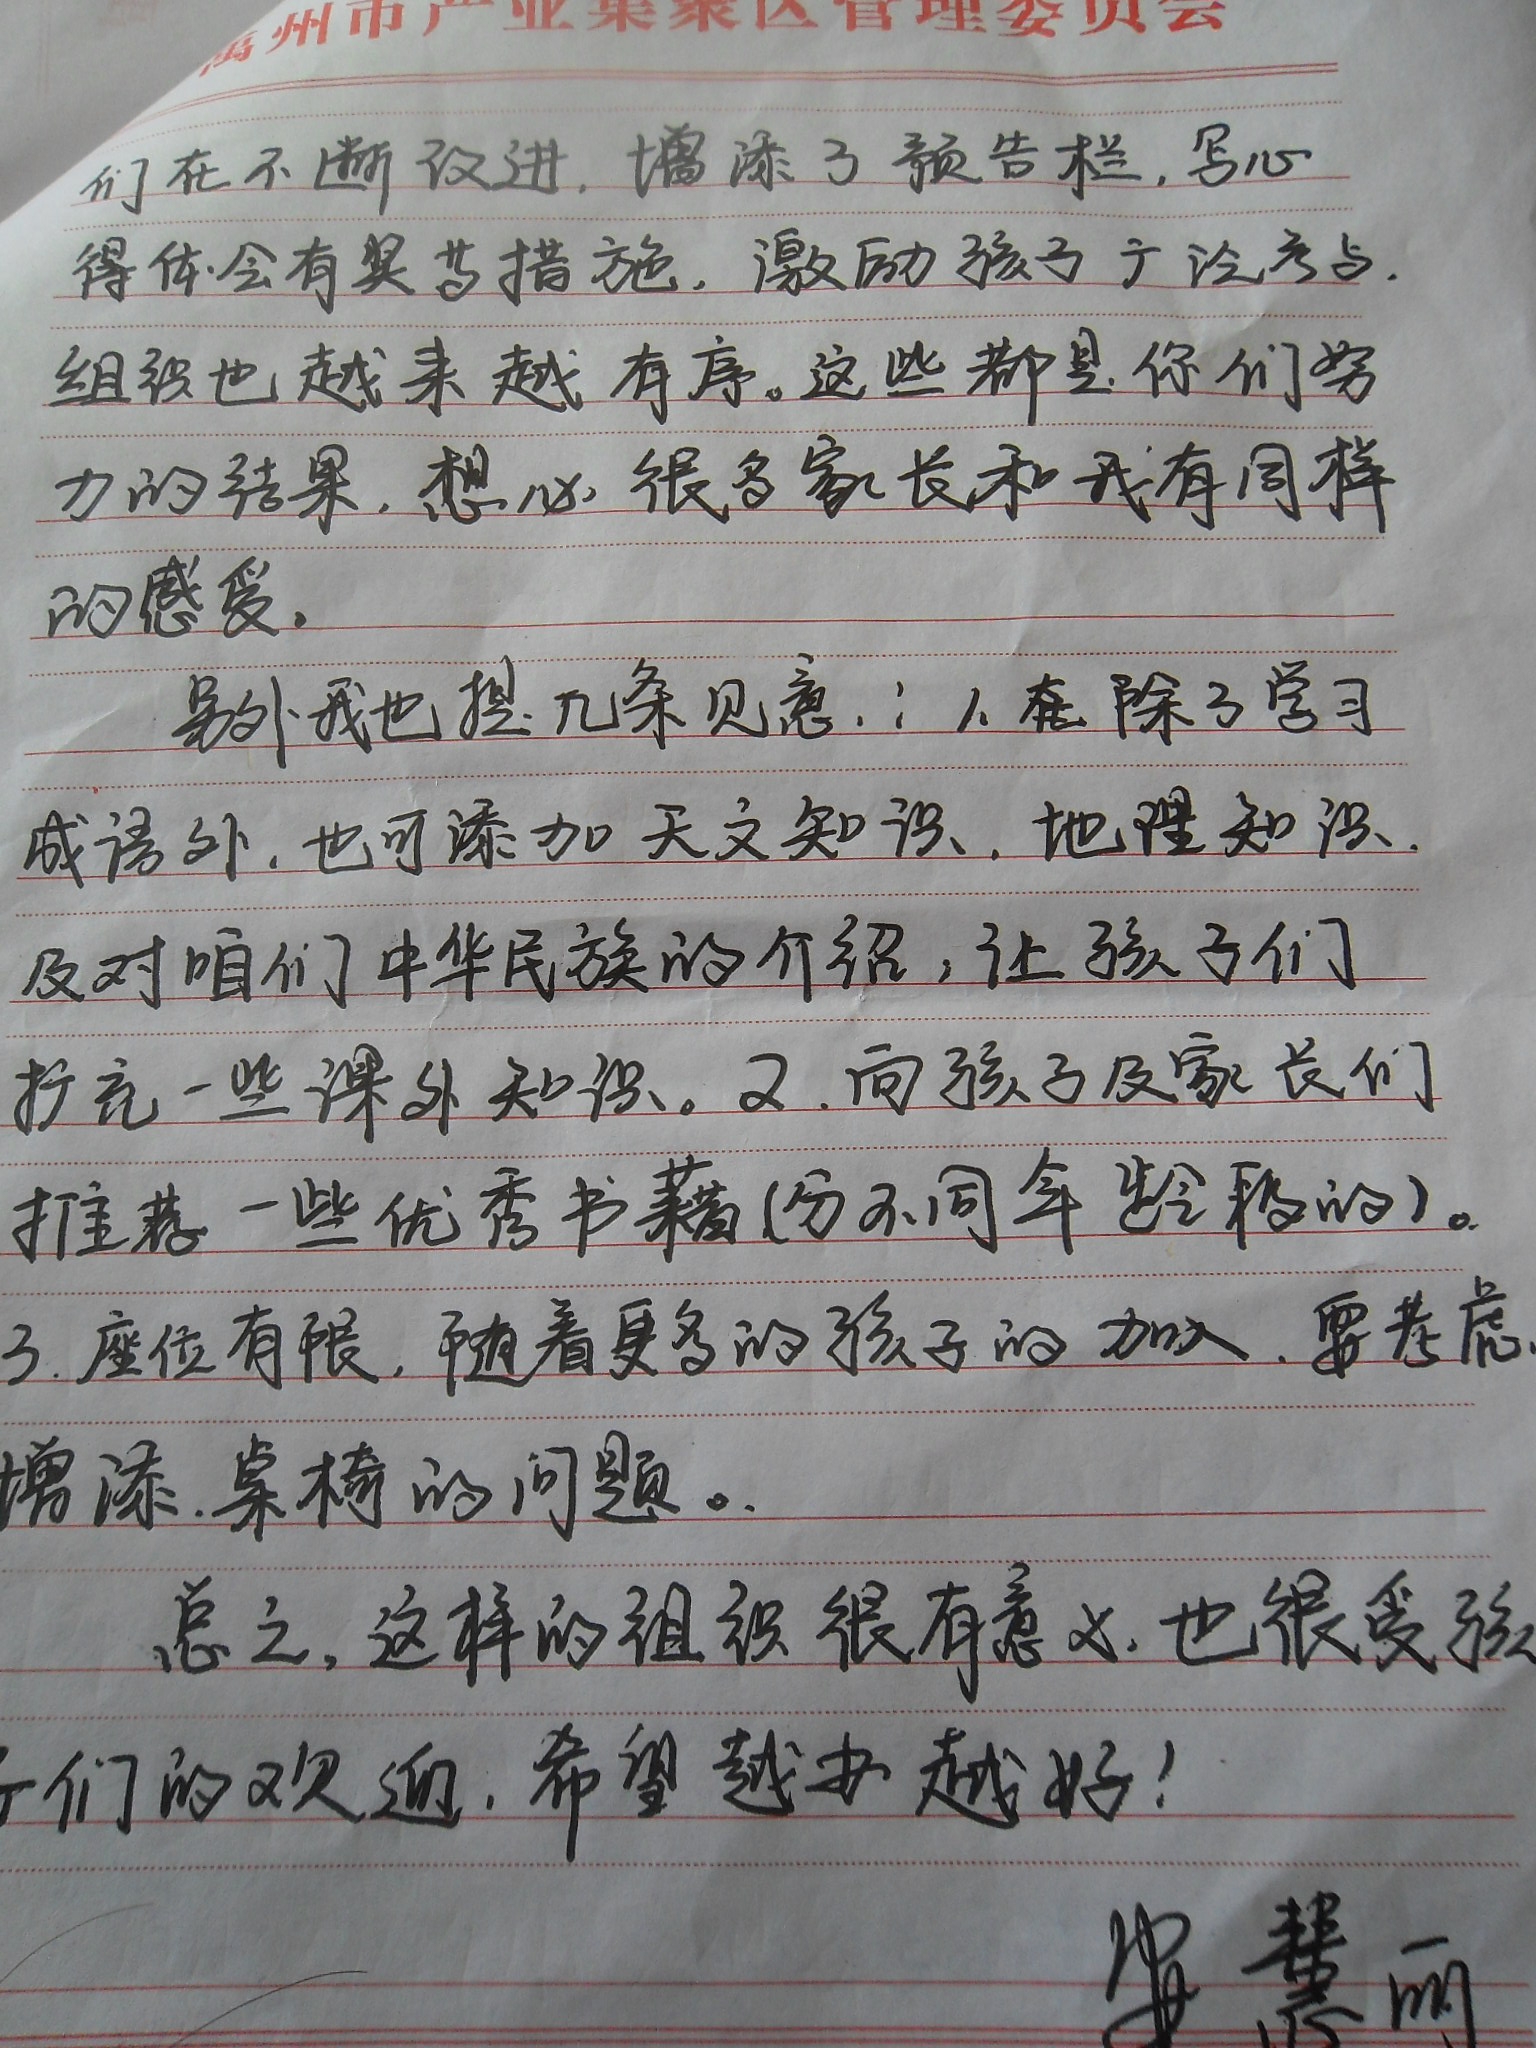 禹州市产业集聚区管理委员会
们在不断改进，增添了预告栏，写心
得体会有奖等措施，激励孩子广泛参与，
组织也越来越有序。这些都是你们努
力的结果，想必很多家长和我有同样
的感受。
另外我也提几条见意：1、在除了学习
成语外，也可添加天文知识，地理知识，
及对咱们中华民族的介绍，让孩子们
扩充一些课外知识。2、向孩子及家长们
推荐一些优秀书籍（分不同年龄段的）。
3、座位有限，随着更多的孩子的加入，要考虑
增添桌椅的问题。
总之，这样的组织很有意义，也很受孩
子们的欢迎，希望越办越好！
慧丽